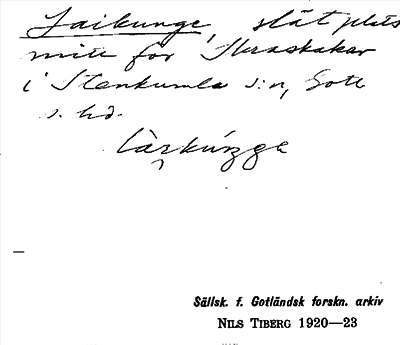 Laikunge, slät plats
mitt för Skraskakar
i Stenkumla s:n, Gotl
s. hd.
Sällsk. f. Gotländsk forskn. arkiv
NILS TIBERG 1920—23